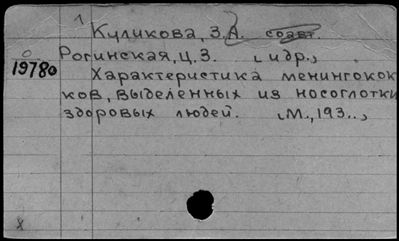 1
Куликова, З.А. соавт.
Рогинская, Ц.З. [и др.,
19780
Характеристика менингокок
ков, выделенных из носоглотки
здоровых людей. [М., 193..,
X